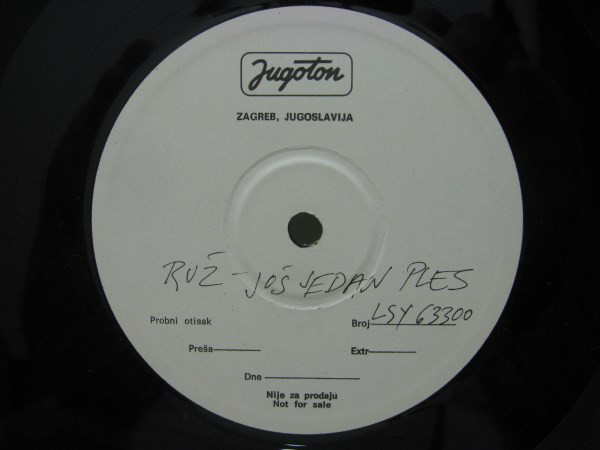 Jugoton
ZAGREB, JUGOSLAVIJA
RUŽ - JOŠ JEDAN PLES
Probni otisak
Broj LSY 63300
Preša
Extr
Dne
Nije za prodaju
Not for sale